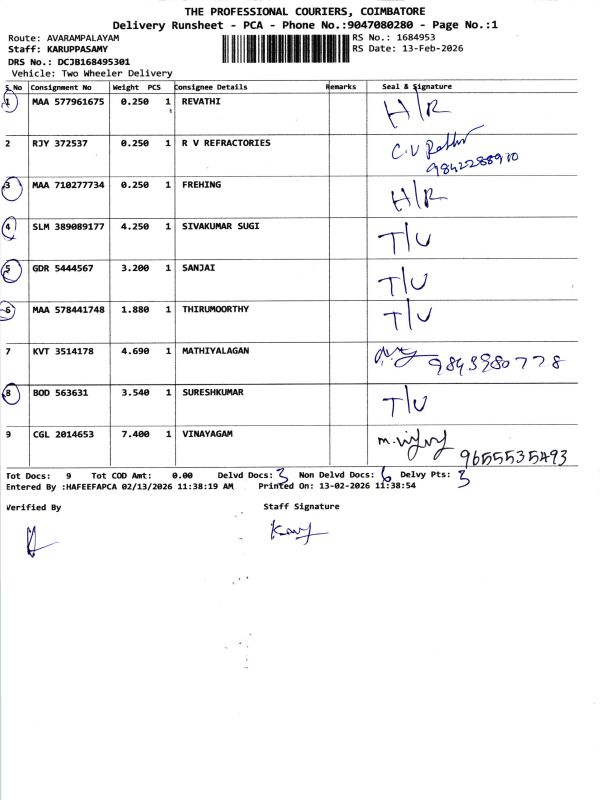 THE PROFESSIONAL COURIERS, COIMBATORE
Delivery Runsheet - PCA - Phone No.:9047080280 - Page No.:1
Route: AVARAMPALAYAM RS No.: 1684953
Staff: KARUPPASAMY RS Date: 13-Feb-2026
DRS No.: DCJB168495301
Vehicle: Two Wheeler Delivery
S.No Consignment No Weight PCS Consignee Details Remarks Seal & Signature
1 MAA 577961675 0.250 1 REVATHI H/R
2 RJY 372537 0.250 1 R V REFRACTORIES C.V
9842288910
3 MAA 710277734 0.250 1 FREHING H/R
4 SLM 389089177 4.250 1 SIVAKUMAR SUGI T/U
5 GDR 5444567 3.200 1 SANJAI T/U
6 MAA 578441748 1.880 1 THIRUMOORTHY T/U
7 KVT 3514178 4.690 1 MATHIYALAGAN 9843980778
8 BOD 563631 3.540 1 SURESHKUMAR T/U
9 CGL 2014653 7.400 1 VINAYAGAM
9655535493
Tot Docs: 9 Tot COD Amt: 0.00 Delvd Docs: 3 Non Delvd Docs: 6 Delvy Pts: 3
Entered By :HAFEEFAPCA 02/13/2026 11:38:19 AM Printed On: 13-02-2026 11:38:54
Verified By Staff Signature